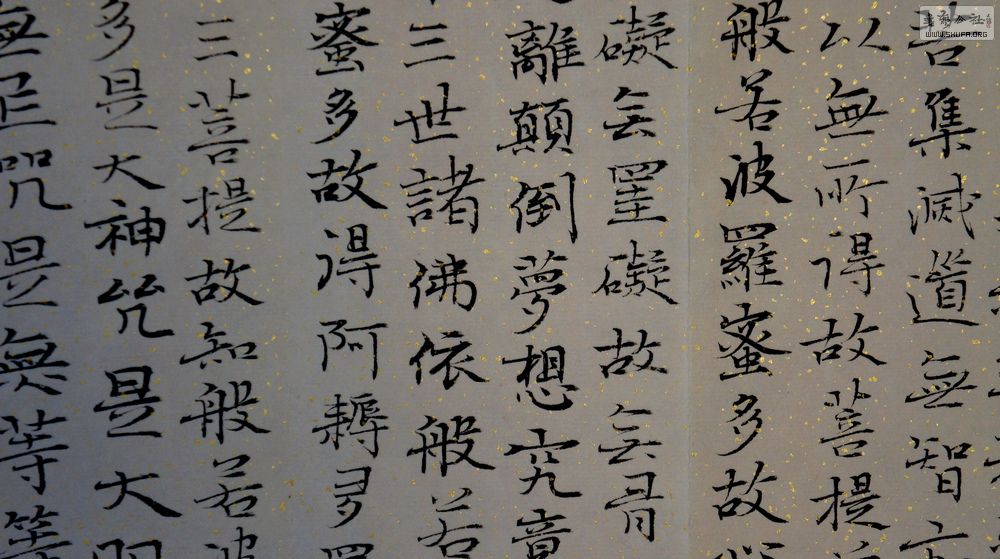 苦集滅道無智
以無所得故菩提
般若波羅蜜多故
礙無罣礙故無有
離顛倒夢想究竟
三世諸佛依般若
蜜多故得阿耨多羅
三菩提故知般若波
多是大神咒是大明
無上咒是無等等
WWW.SHUFA.ORG